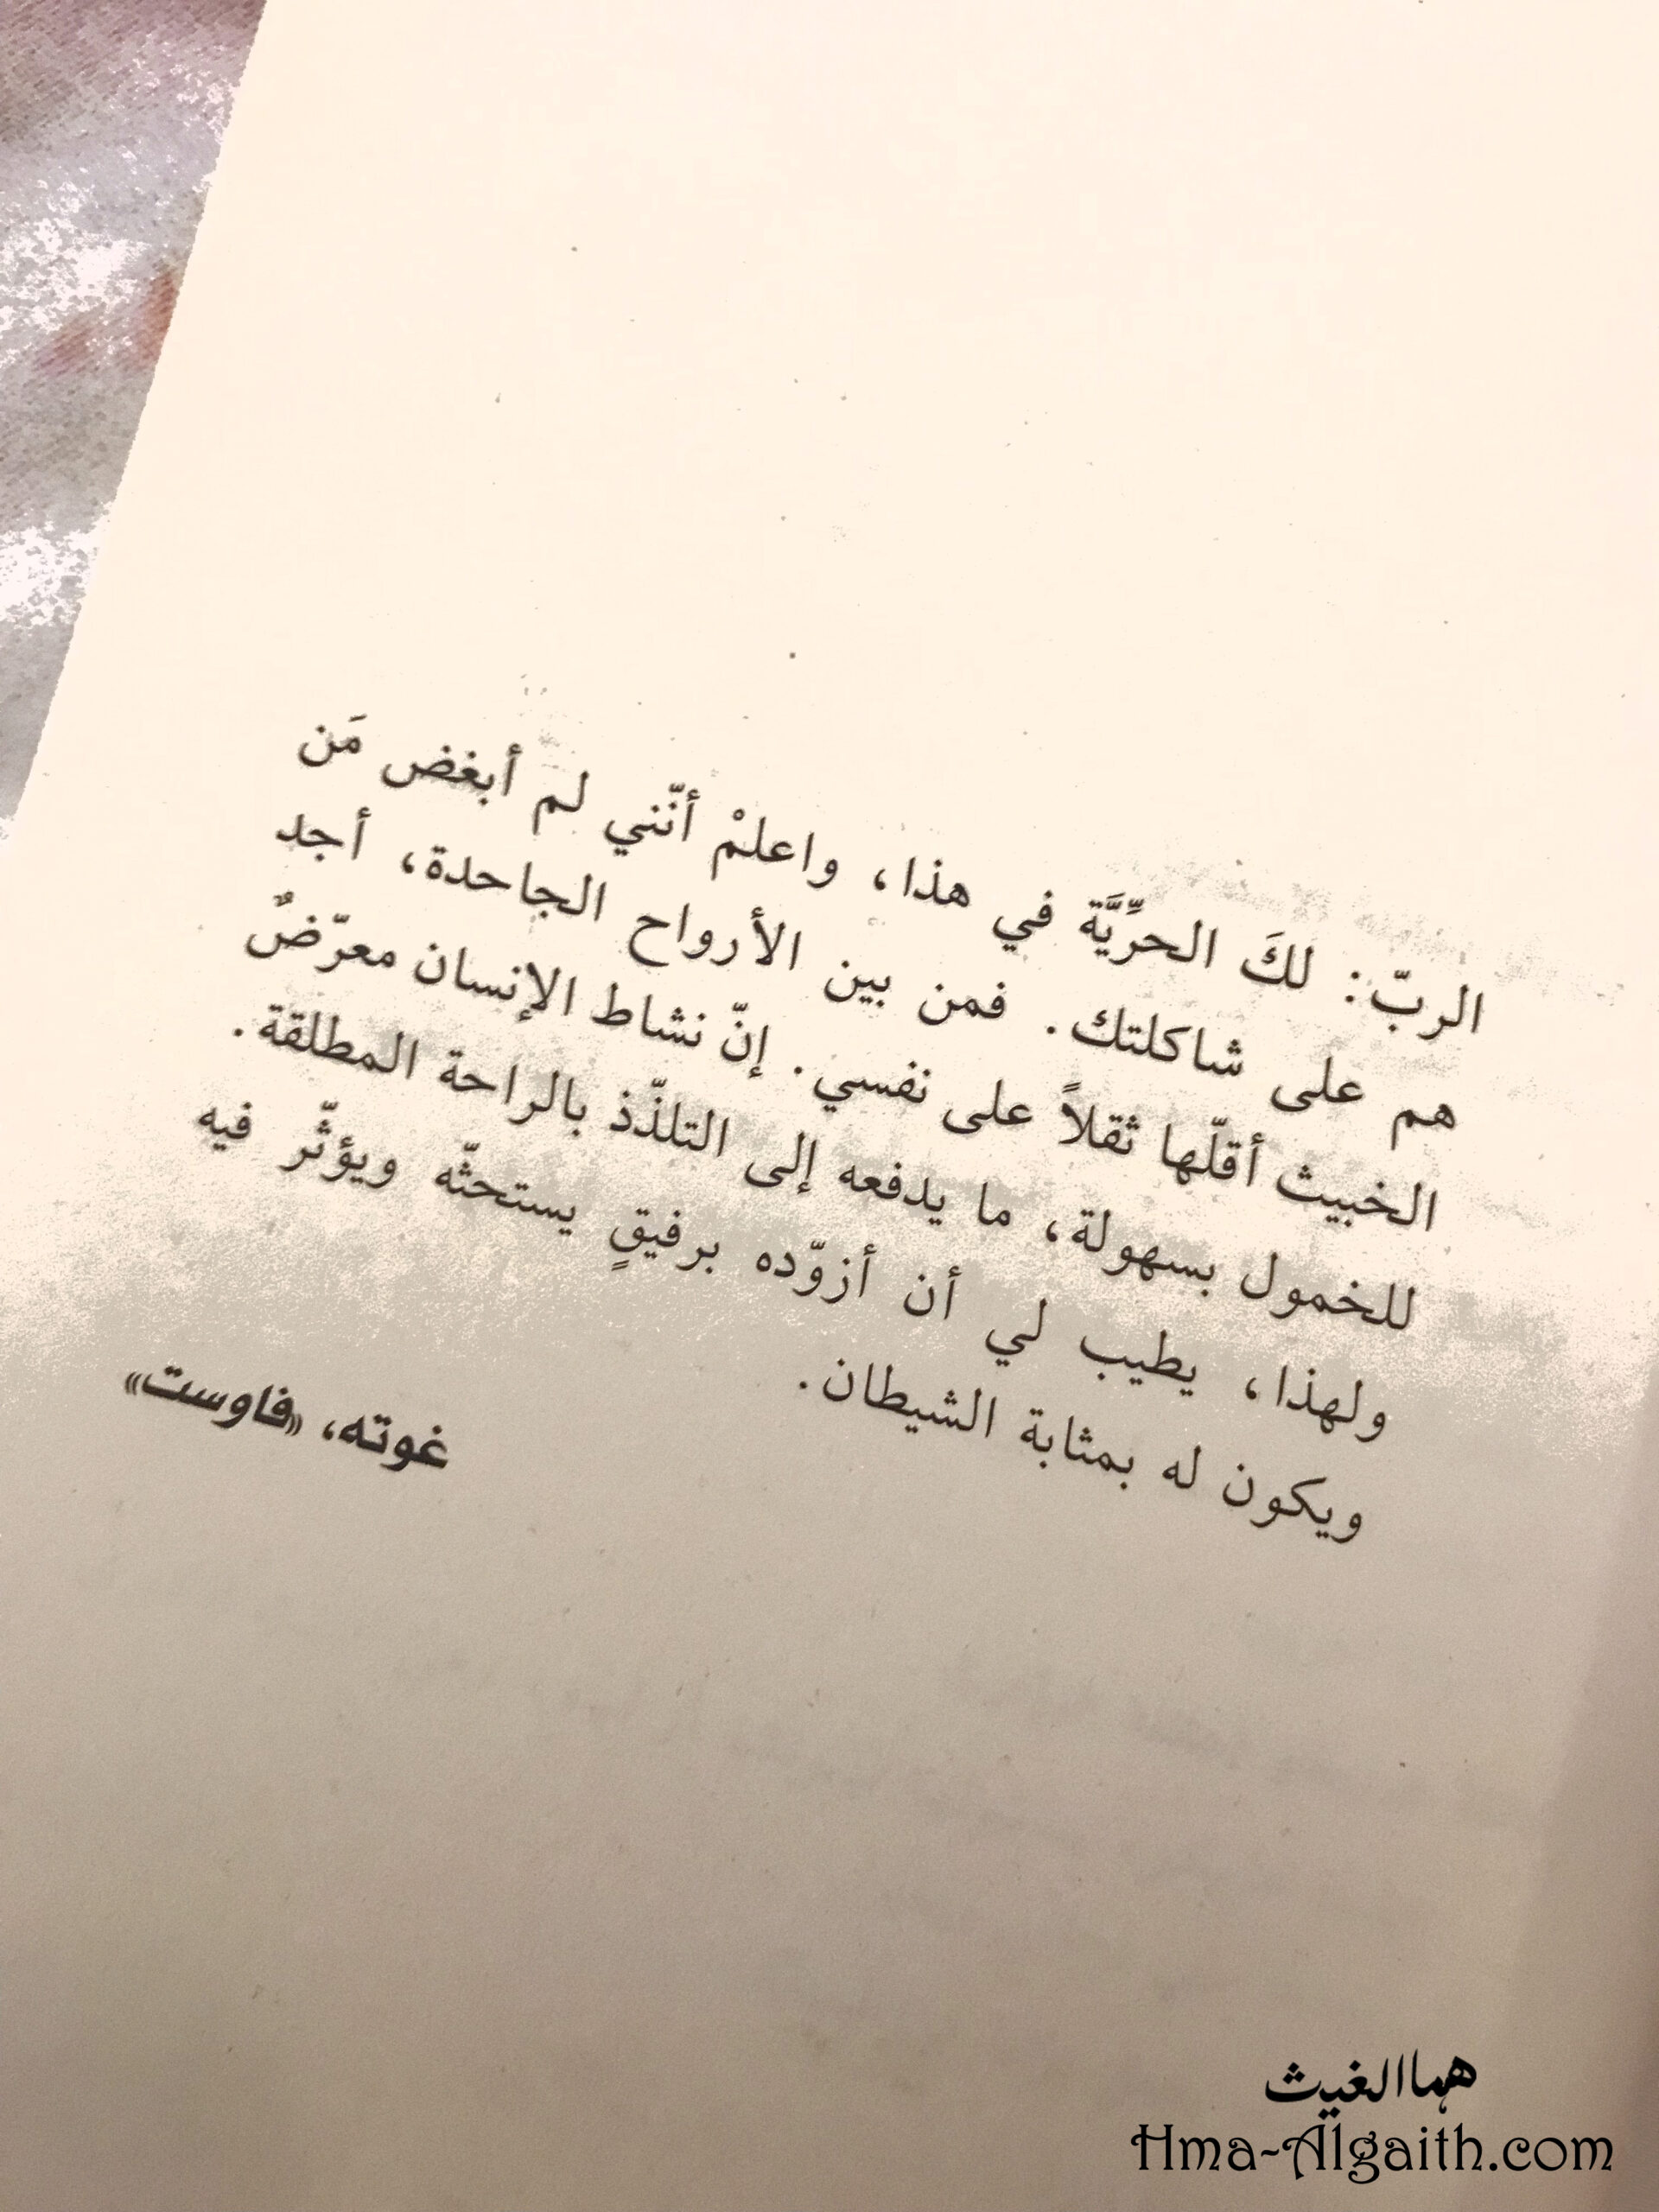 الربّ: لكَ الحرِّيَّة في هذا، واعلمْ أنّني لم أبغض مَن
هم على شاكلتك. فمن بين الأرواح الجاحدة، أجد
الخبيث أقلّها ثقلاً على نفسي. إنّ نشاط الإنسان معرّضٌ
للخمول بسهولة، ما يدفعه إلى التلذّذ بالراحة المطلقة.
ولهذا، يطيب لي أن أزوّده برفيقٍ يستحثّه ويؤثّر فيه
ويكون له بمثابة الشيطان.
غوته، «فاوست»
هما الغيث
Hma-Algaith.com